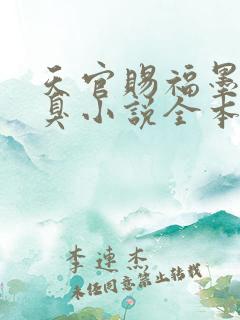 天官赐福墨
真小说全本
李连杰
未经同意禁止转载